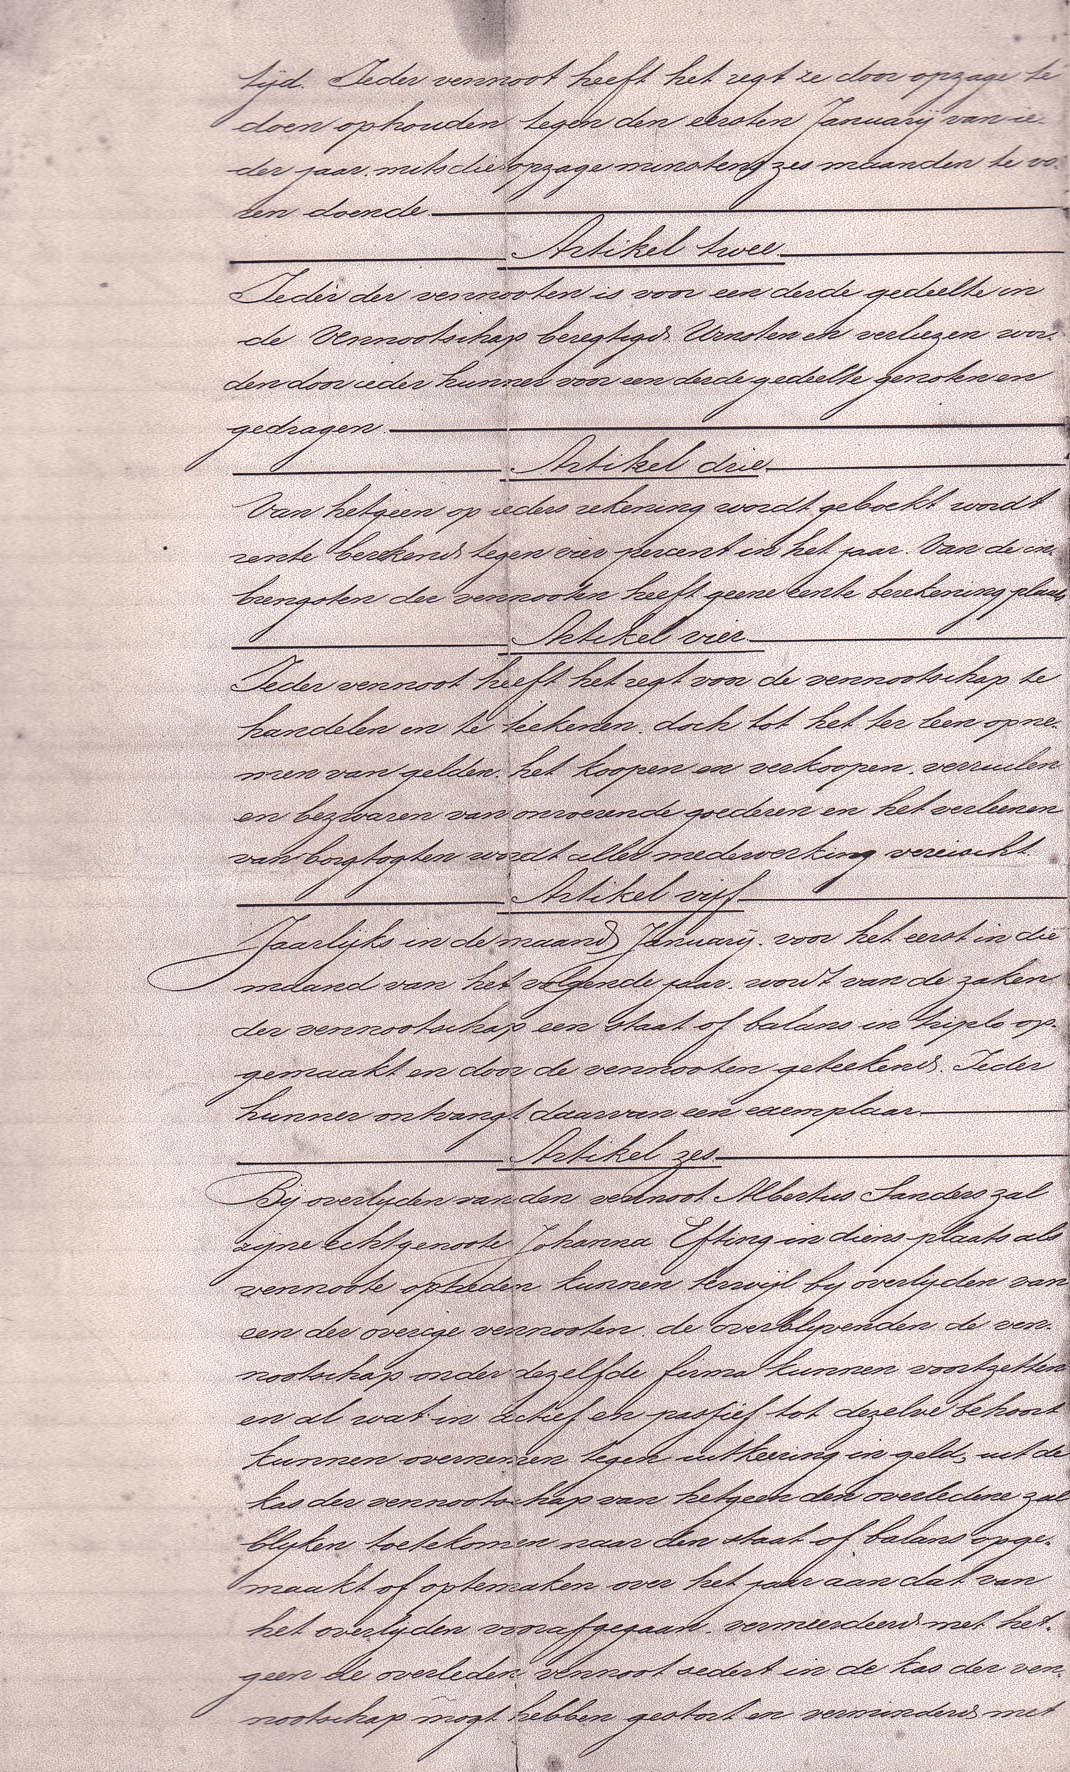 tijd. Ieder vennoot heeft het regt ze door opzage te
doen ophouden tegen den eersten Januarij van ie-
der jaar, mits die opzage minstens zes maanden te vo-
ren doende.
Artikel twee
Ieder der vennooten is voor een derde gedeelte in
de Vennootschap beregtigd. Winsten en verliezen wor-
den door ieder hunner voor een derde gedeelte genoten en
gedragen.
Artikel drie
Van hetgeen op ieders rekening wordt geboekt wordt
rente berekend tegen vier percent in het jaar. Van de in-
brengsten der vennooten heeft geene rente berekening plaats
Artikel vier
Ieder vennoot heeft het regt voor de vennootschap te
handelen en te teekenen, doch tot het ter leen opne-
men van gelden, het koopen en verkoopen, verruilen
en bezwaren van onroerende goederen en het verleenen
van borgtogten wordt aller medewerking vereischt.
Artikel vijf
Jaarlijks in de maand Januarij, voor het eerst in die
maand van het volgende jaar, wordt van de zaken
der vennootschap een staat of balans in triplo op-
gemaakt en door de vennooten geteekend. Ieder
hunner ontvangt daarvan een exemplaar.
Artikel zes
Bij overlijden van den vennoot Albertus Sanders zal
zijne echtgenoote Johanna Efting in diens plaats als
vennoote optreden kunnen terwijl bij overlijden van
een der overige vennooten, de overblijvenden de ven-
nootschap onder dezelfde firma kunnen voortzetten
en al wat in actief en passief tot dezelve behoort
kunnen overnemen tegen uitkeering in geld, uit de
kas der vennootschap van hetgeen den overledene zal
blijken toetekomen naar den staat of balans opge-
maakt of optemaken over het jaar aan dat van
het overlijden voorafgegaan, vermeerderd met het-
geen de overleden vennoot sedert in de kas der ven-
nootschap mogt hebben gestort en verminderd met